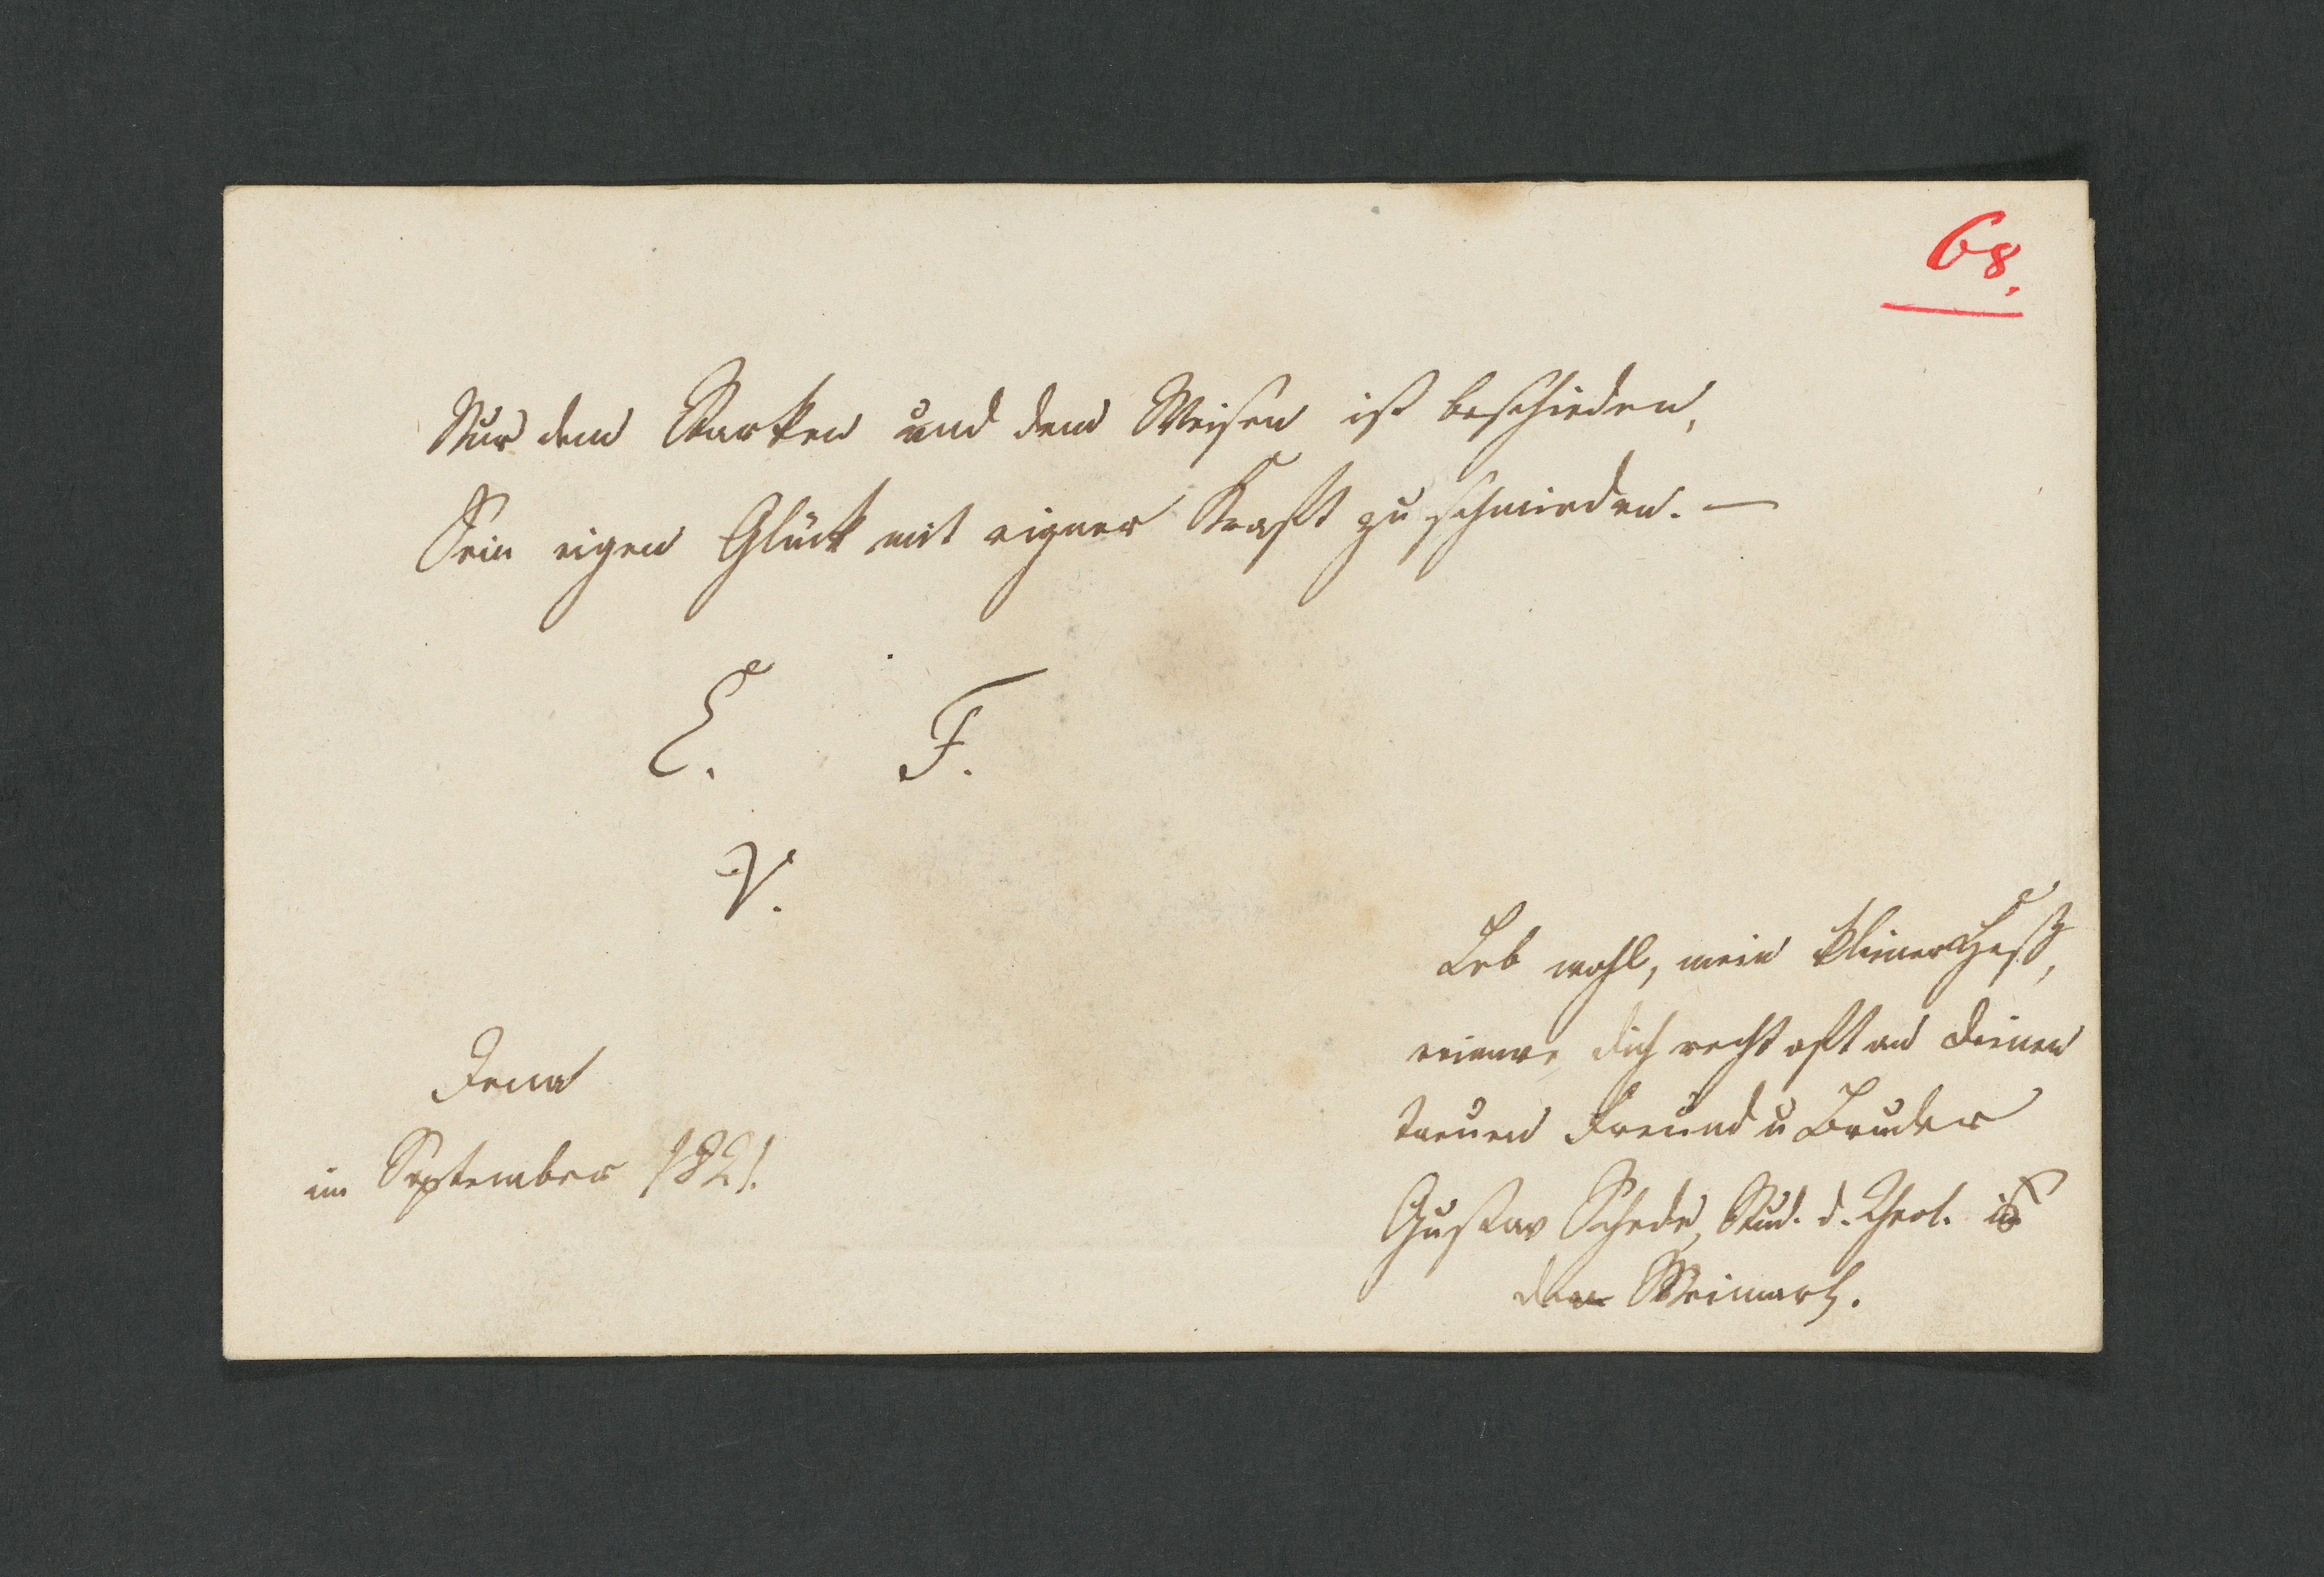 68.
Nur dem Starken und dem Weisen ist beschieden,
Sein eigen Glück mit eigner Kraft zu schmieden. —
E. F.
V.
Leb wohl, mein kleiner Heß,
erinnre dich recht oft an deinen
treuen Freund u Bruder
Gustav Schede, Stud. d. Theol.
Jena
im September 1821.